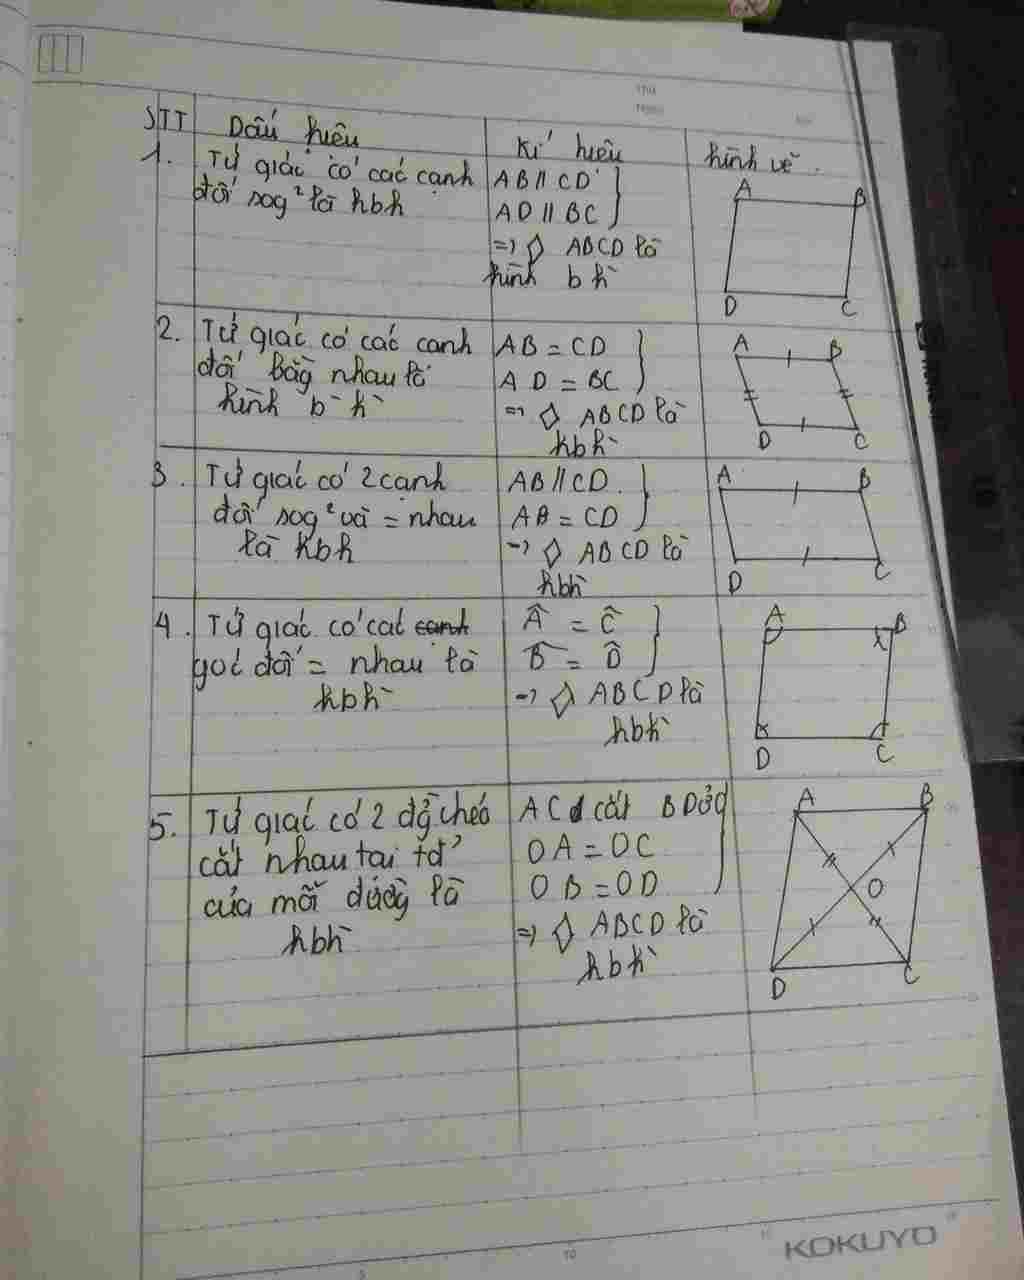 STT Dấu hiệu Kí hiệu hình vẽ.
1. Tứ giác có các cạnh
đối sog² là hbh
AB // CD
AD // BC
=> ◊ ABCD là
hình b h̀
A B
D C
2. Tứ giác có các cạnh
đối bằg nhau là
hình b h̀
AB = CD
AD = BC
=> ◊ ABCD là
hbh̀
A B
D C
3. Tứ giác có 2 cạnh
đối sog² và = nhau
là hbh
AB // CD
AB = CD
=> ◊ ABCD là
hbh̀
A B
D C
4. Tứ giác có các cạnh
góc đối = nhau là
hbh̀
Â = Ĉ
B̂ = D̂
=> ◊ ABCD là
hbh̀
A B
D C
5. Tứ giác có 2 đg̀ chéo
cắt nhau tại tđ
của mỗi đườg là
hbh̀
AC cắt BD ở O
OA = OC
OB = OD
=> ◊ ABCD là
hbh̀
A B
O
D C
KOKUYO